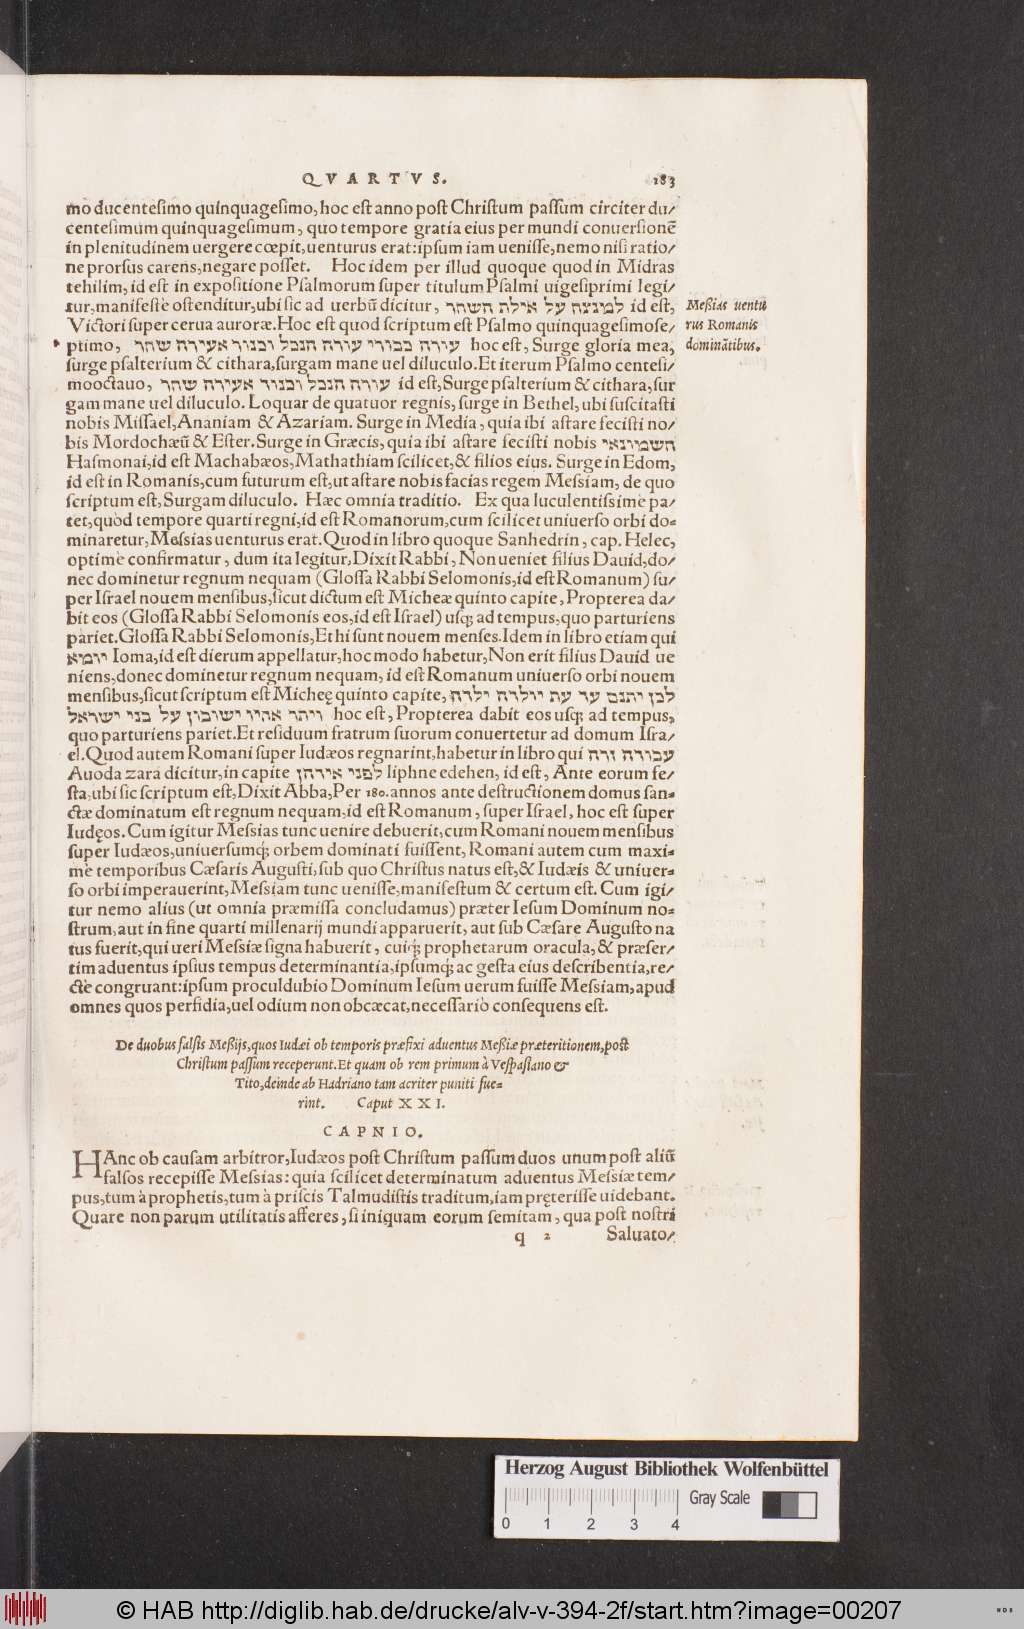 QVARTVS. 183
mo ducentesimo quinquagesimo, hoc est anno post Christum passum circiter du/
centesimum quinquagesimum, quo tempore gratia eius per mundi conuersionē
in plenitudinem uergere cœpit, uenturus erat: ipsum iam uenisse, nemo nisi ratio/
ne prorsus carens, negare posset. Hoc idem per illud quoque quod in Midras
tehilim, id est in expositione Psalmorum super titulum Psalmi uigesiprimi legi/
tur, manifestè ostenditur, ubi sic ad uerbū dicitur, למנצח על אילת השחר id est,
Meßias uentu
Victori super cerua auroræ. Hoc est quod scriptum est Psalmo quinquagesimose/
rus Romanis
ptimo, עורה כבודי עורה הנבל וכנור אעירה שחר hoc est, Surge gloria mea,
dominātibus.
surge psalterium & cithara, surgam mane uel diluculo. Et iterum Psalmo centesi/
mooctauo, עורה הנבל וכנור אעירה שחר id est, Surge psalterium & cithara, sur
gam mane uel diluculo. Loquar de quatuor regnis, surge in Bethel, ubi suscitasti
nobis Missael, Ananiam & Azariam. Surge in Media, quia ibi astare fecisti no/
bis Mordochæū & Ester. Surge in Græcis, quia ibi astare fecisti nobis חשמונאי
Hasmonai, id est Machabæos, Mathathiam scilicet, & filios eius. Surge in Edom,
id est in Romanis, cum futurum est, ut astare nobis facias regem Messiam, de quo
scriptum est, Surgam diluculo. Hæc omnia traditio. Ex qua luculentissime pa/
tet, quòd tempore quarti regni, id est Romanorum, cum scilicet uniuerso orbi do=
minaretur, Messias uenturus erat. Quod in libro quoque Sanhedrin, cap. Helec,
optimè confirmatur, dum ita legitur, Dixit Rabbi, Non ueniet filius Dauid, do/
nec dominetur regnum nequam (Glossa Rabbi Selomonis, id est Romanum) su/
per Israel nouem mensibus, sicut dictum est Micheæ quinto capite, Propterea da/
bit eos (Glossa Rabbi Selomonis eos, id est Israel) usq; ad tempus, quo parturiens
pariet. Glossa Rabbi Selomonis, Et hi sunt nouem menses. Idem in libro etiam qui
יומא Ioma, id est dierum appellatur, hoc modo habetur, Non erit filius Dauid ue
niens, donec dominetur regnum nequam, id est Romanum uniuerso orbi nouem
mensibus, sicut scriptum est Micheę quinto capite, לכן יתנם עד עת יולדה ילדה
ויתר אחיו ישובון על בני ישראל hoc est, Propterea dabit eos usq; ad tempus,
quo parturiens pariet. Et residuum fratrum suorum conuertetur ad domum Isra/
el. Quod autem Romani super Iudæos regnarint, habetur in libro qui עבודה זרה
Auoda zara dicitur, in capite לפני אידהן liphne edehen, id est, Ante eorum fe/
sta, ubi sic scriptum est, Dixit Abba, Per 180. annos ante destructionem domus san=
ctæ dominatum est regnum nequam, id est Romanum, super Israel, hoc est super
Iudęos. Cum igitur Messias tunc uenire debuerit, cum Romani nouem mensibus
super Iudæos, uniuersumq; orbem dominati fuissent, Romani autem cum maxi=
mè temporibus Cæsaris Augusti, sub quo Christus natus est, & Iudæis & uniuer=
so orbi imperauerint, Messiam tunc uenisse, manifestum & certum est. Cum igi/
tur nemo alius (ut omnia præmissa concludamus) præter Iesum Dominum no=
strum, aut in fine quarti millenarij mundi apparuerit, aut sub Cæsare Augusto na
tus fuerit, qui ueri Messiæ signa habuerit, cuiq; prophetarum oracula, & præser/
tim aduentus ipsius tempus determinantia, ipsumq; ac gesta eius describentia, re/
ctè congruant: ipsum proculdubio Dominum Iesum uerum fuisse Messiam, apud
omnes quos perfidia, uel odium non obcæcat, necessariò consequens est.
De duobus falsis Meßijs, quos Iudæi ob temporis præfixi aduentus Meßiæ præteritionem, post
Christum passum receperunt. Et quam ob rem primum à Vespasiano &
Tito, deinde ab Hadriano tam acriter puniti fue=
rint. Caput XXI.
CAPNIO.
HAnc ob causam arbitror, Iudæos post Christum passum duos unum post aliū
falsos recepisse Messias: quia scilicet determinatum aduentus Messiæ tem/
pus, tum à prophetis, tum à priscis Talmudistis traditum, iam pręterisse uidebant.
Quare non parum utilitatis afferes, si iniquam eorum semitam, qua post nostri
q 2 Saluato/
Herzog August Bibliothek Wolfenbüttel
Gray Scale
0 1 2 3 4
© HAB http://diglib.hab.de/drucke/alv-v-394-2f/start.htm?image=00207